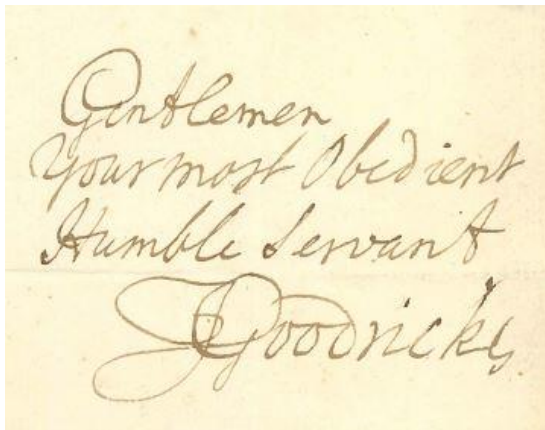 Gentlemen
Your most Obedient
Humble Servant
J Goodricke